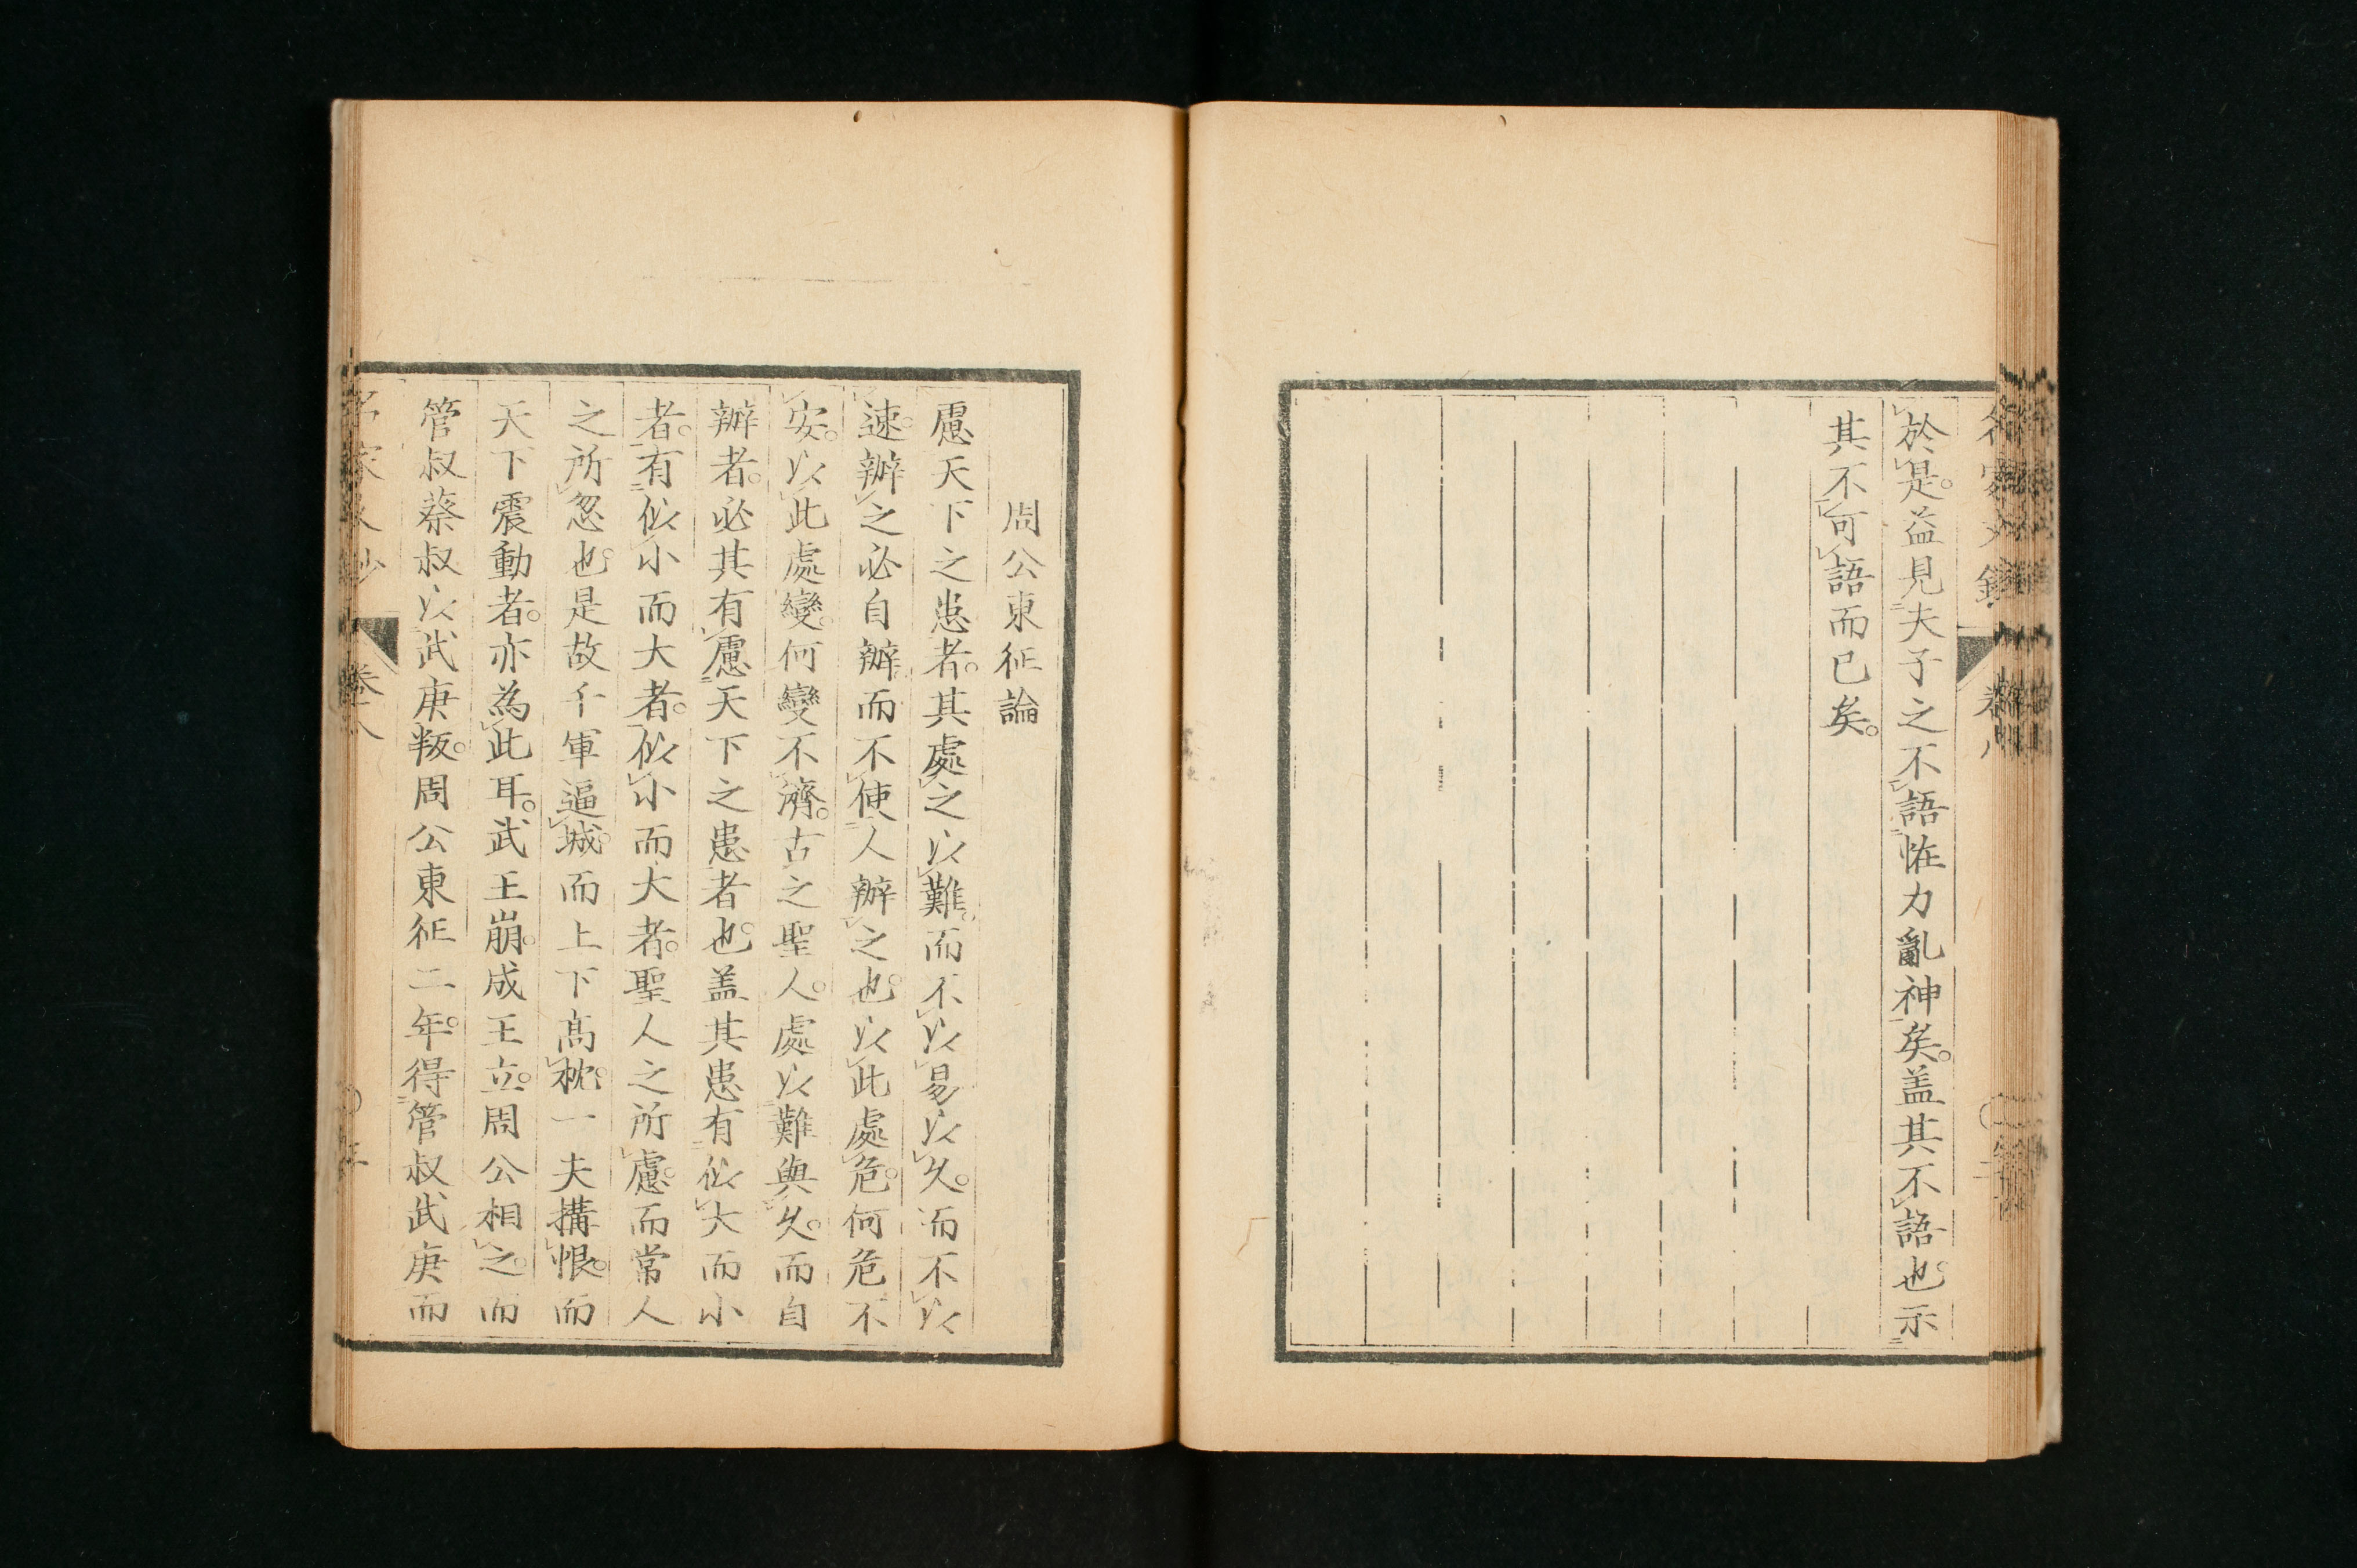 於是。益見夫子之不語恠力亂神矣。盖其不語也。示
其不可語而已矣。
周公東征論
慮天下之患者。其處之以難。而不以易以久。而不以
速。辦之必自辦。而不使人辦之也。以此處危。何危不
安。以此處變。何變不濟。古之聖人。處以難與久。而自
辦者。必其有慮天下之患者也。盖其患有似大而小
者。有似小而大者。似小而大者。聖人之所慮。而常人
之所忽也。是故千軍逼城。而上下高枕。一夫搆恨。而
天下震動者。亦為此耳。武王崩。成王立。周公相之。而
管叔蔡叔以武庚叛。周公東征二年。得管叔武庚而
卷八